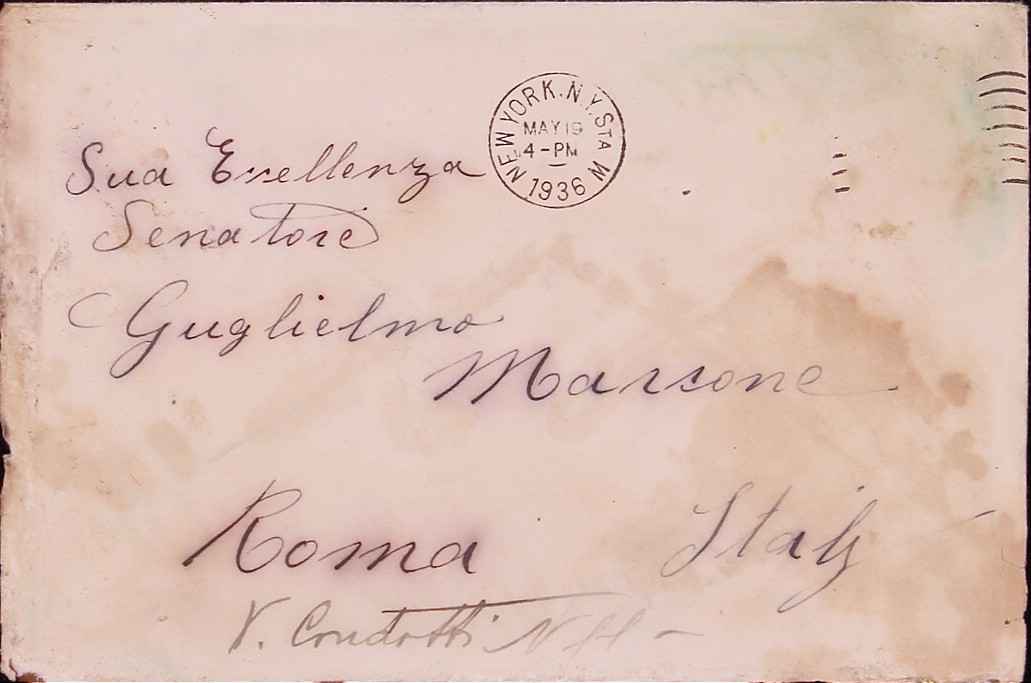 NEW YORK. N.Y. STA W
MAY 19
4-PM
1936
Sua Excellenza
Senatore
Guglielmo
Marcone
Roma Italy
V. Condotti